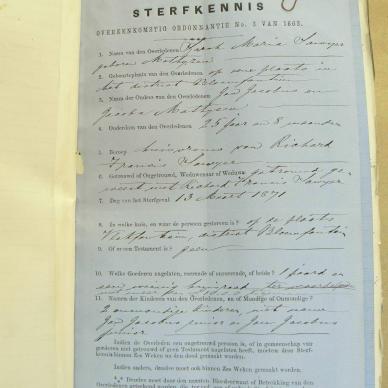 STERFKENNIS
OVEREENKOMSTIG ORDONNANTIE No. 3 VAN 1863.
1. Naam van den Overledene? Sarah Maria Sawyer
geboren Mathysen
2. Geboorteplaats van den Overledenen. op eene plaats in
het district Bloemfontein
3. Namen der Ouders van den Overledenen Jan Jacobus en
Jacoba Mathysen
4. Ouderdom van den Overledenen. 25 jaar en 8 maanden
5. Beroep huisvrouw van Richard
Francis Sawyer
6. Getrouwd of Ongetrouwd, Weduwnaar of Weduwe getrouwd ge-
weest met Richard Francis Sawyer
7. Dag van het Sterfgeval 13 Maart 1871
8. In welke huis, en waar de persoon gestorven is? op de plaats
Vlakfontein, district Bloemfontein
9. Of er een Testament is? geen
10. Welke Goederen nagelaten, roerende of onroerende, of beide? 1 paard en
een weinig huisraad
11. Namen der Kinderen van den Overledenen, en of Mondige of Onmondige?
2 onmondige kinderen, met name
Jan Jacobus junior en Jan Jacobus
junior
Indien de Overleden een ongetrouwd persoon is, of in gemeenschap van
goederen niet getrouwd of geen Testament nagelaten heeft, moeten deze Sterf-
kennisbinnen Zes Weken na den dood gemaakt worden.
Indien anders, dan deze moet ook binnen Zes Weken gemaakt worden.
*** Dezulke moet door den naasten Bloedverwant of Betrekking van den